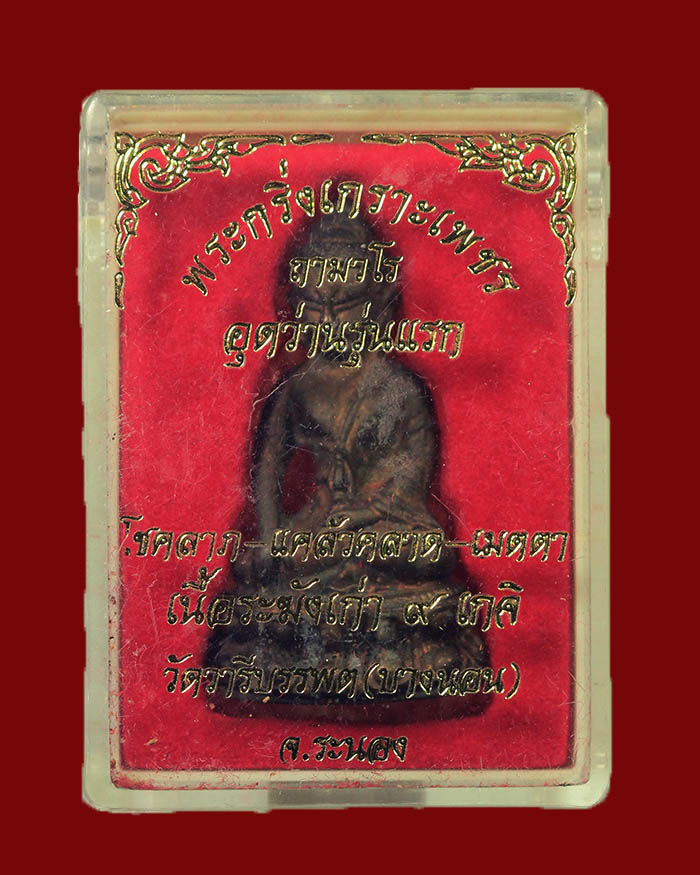 พระกริ่งเกราะเพชร
ถามวโร
อุดว่านรุ่นแรก
โชคลาภ-แคล้วคลาด-เมตตา
เนื้อระฆังเก่า ๙ เกจิ
วัดวารีบรรพต (บางนอน)
จ.ระนอง